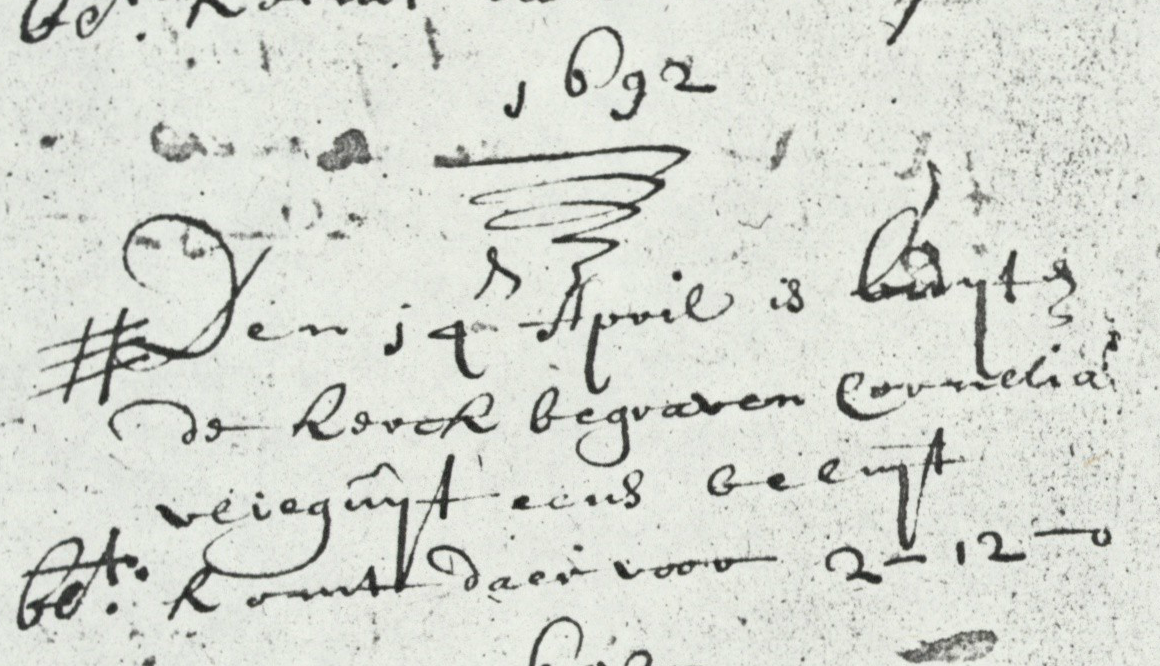 1692
Den 14 April is buyten
de kerck begraven Cornelia
vlieguyt eens beluyt
bet. komt daer voor 2-12-0